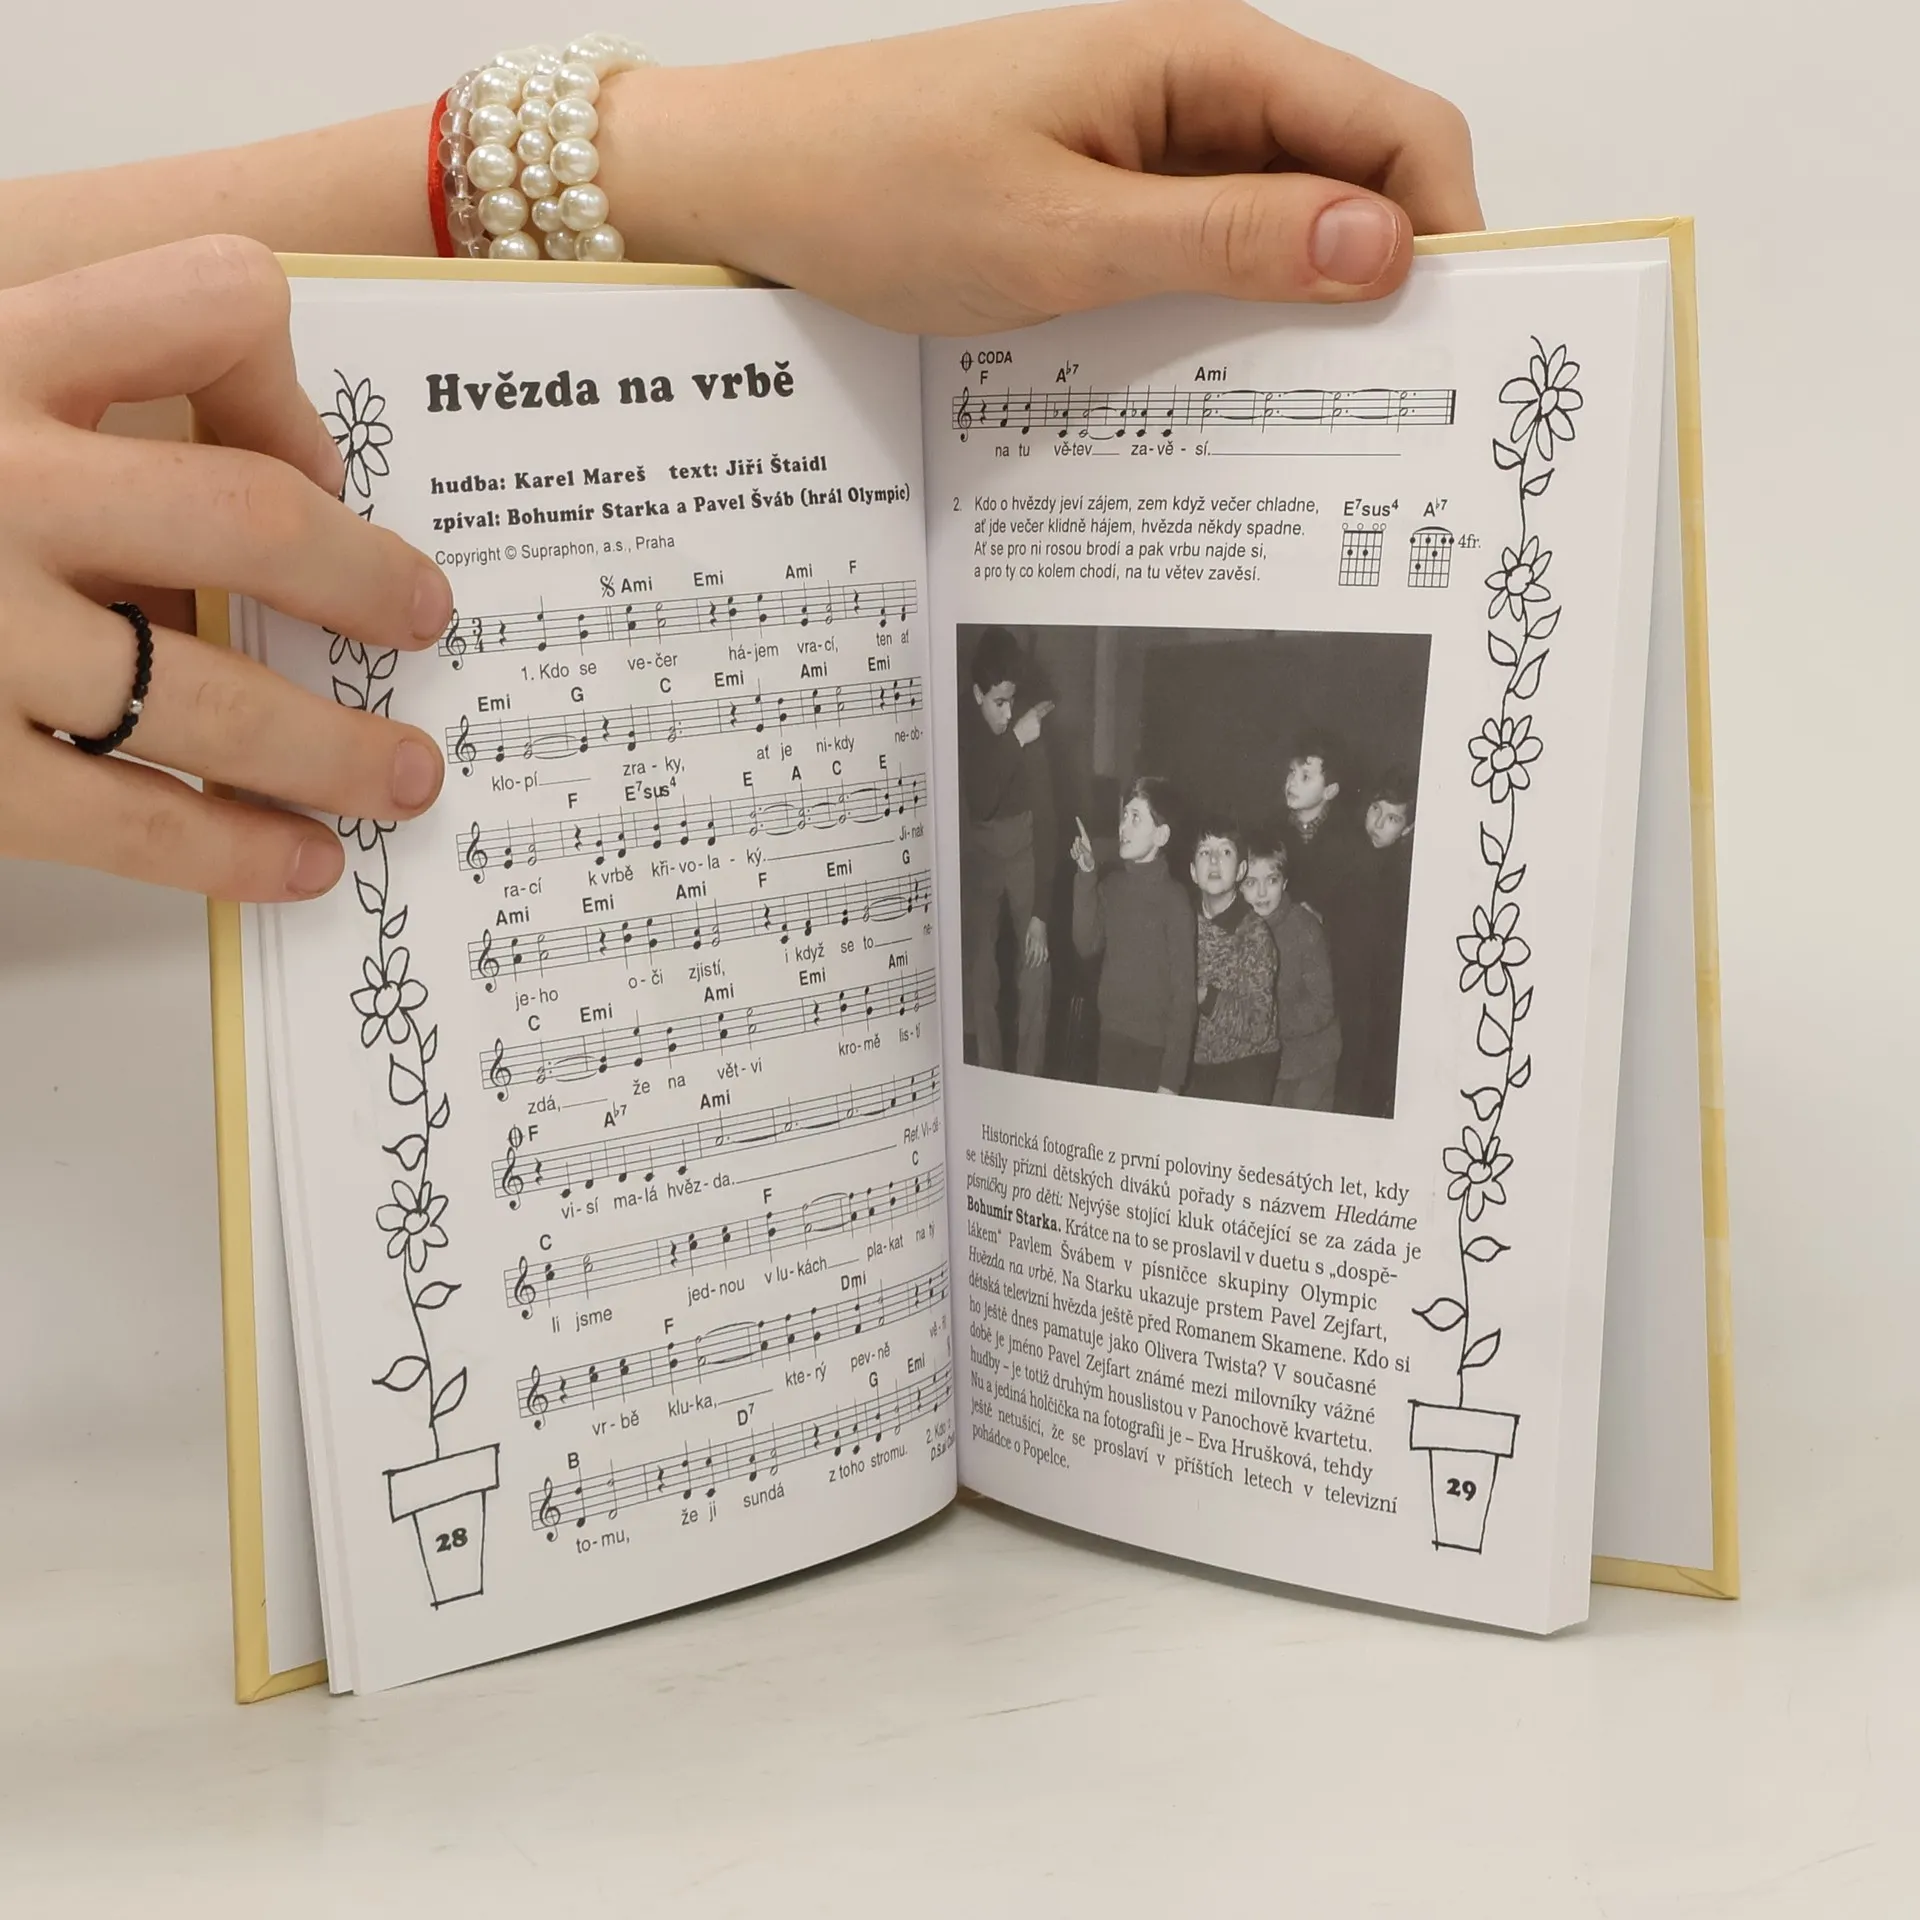 Hvězda na vrbě
hudba: Karel Mareš text: Jiří Štaidl
zpíval: Bohumír Starka a Pavel Šváb (hrál Olympic)
Copyright © Supraphon, a.s., Praha
Ami Emi Ami F
3
4
1. Kdo se ve-čer há-jem vra-cí, ten ať
Emi G C Emi Ami Emi
klo-pí zra-ky, ať je ni-kdy ne-ob-
F E7sus4 E A C E
ra-cí k vrbě kři-vo-la-ký. Ji-nak
Ami Emi Ami F Emi G
je-ho o-či zjistí, i když se to ne-
C Emi Ami Emi Ami
zdá, že na vět-vi kro-mě lis-tí
F A♭7 Ami
vi-sí ma-lá hvěz-da. Ref. Vi-dě-
C F C
li jsme jed-nou v lu-kách pla-kat na tý
F Dmi
vr-bě klu-ka, kte-rý pev-ně vě-řil
B D7 G Emi
to-mu, že ji sundá z toho stromu. 2. Kdo o
28
CODA
F A♭7 Ami
na tu vě-tev za-vě-sí.
2. Kdo o hvězdy jeví zájem, zem když večer chladne,
ať jde večer klidně hájem, hvězda někdy spadne.
Ať se pro ni rosou brodí a pak vrbu najde si,
a pro ty co kolem chodí, na tu větev zavěsí.
E7sus4 A♭7
4fr.
Historická fotografie z první poloviny šedesátých let, kdy
se těšily přízni dětských diváků pořady s názvem Hledáme
písničky pro děti: Nejvýše stojící kluk otáčející se za záda je
Bohumír Starka. Krátce na to se proslavil v duetu s „dospě-
lákem“ Pavlem Švábem v písničce skupiny Olympic
Hvězda na vrbě. Na Starku ukazuje prstem Pavel Zejfart,
dětská televizní hvězda ještě před Romanem Skamene. Kdo si
ho ještě dnes pamatuje jako Olivera Twista? V současné
době je jméno Pavel Zejfart známé mezi milovníky vážné
hudby – je totiž druhým houslistou v Panochově kvartetu.
Nu a jediná holčička na fotografii je – Eva Hrušková, tehdy
ještě netušící, že se proslaví v příštích letech v televizní
pohádce o Popelce.
29